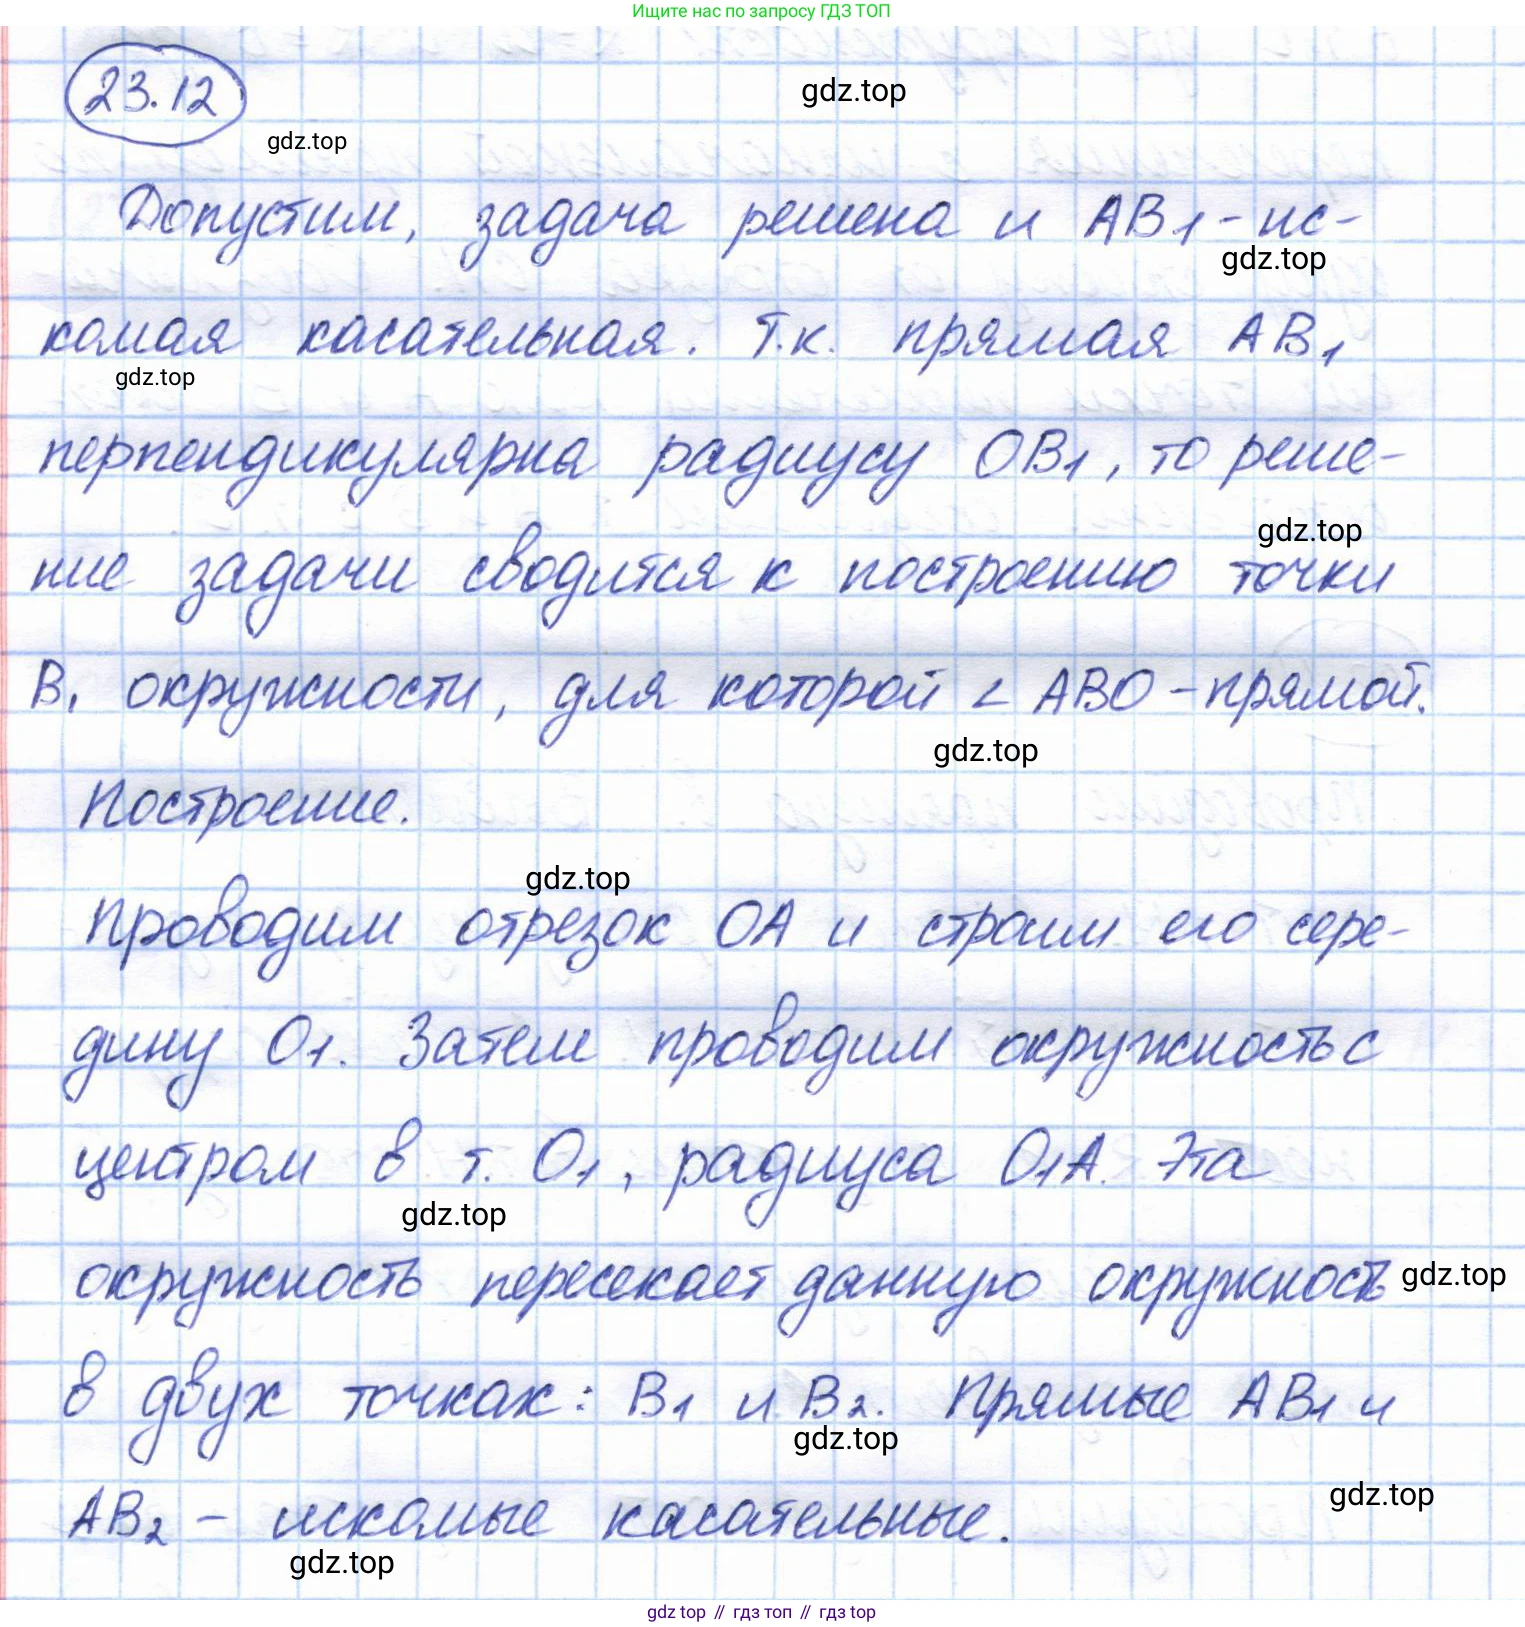 Ищите нас по запросу ГДЗ ТОП
23.12
gdz.top
gdz.top
Допустим, задача решена и AB1 - ис-
gdz.top
комая касательная. Т.к. прямая AB1
gdz.top
перпендикулярна радиусу OB1, то реше-
gdz.top
ние задачи сводится к построению точки
B1 окружности, для которой ∠ ABO - прямой.
gdz.top
Построение.
gdz.top
Проводим отрезок OA и строим его сере-
дину O1. Затем проводим окружность с
центром в т. O1, радиуса O1A. Эта
gdz.top
окружность пересекает данную окружность
gdz.top
в двух точках: B1 и B2. Прямые AB1 и
gdz.top
gdz.top
AB2 - искомые касательные.
gdz.top
gdz top // гдз топ // гдз top